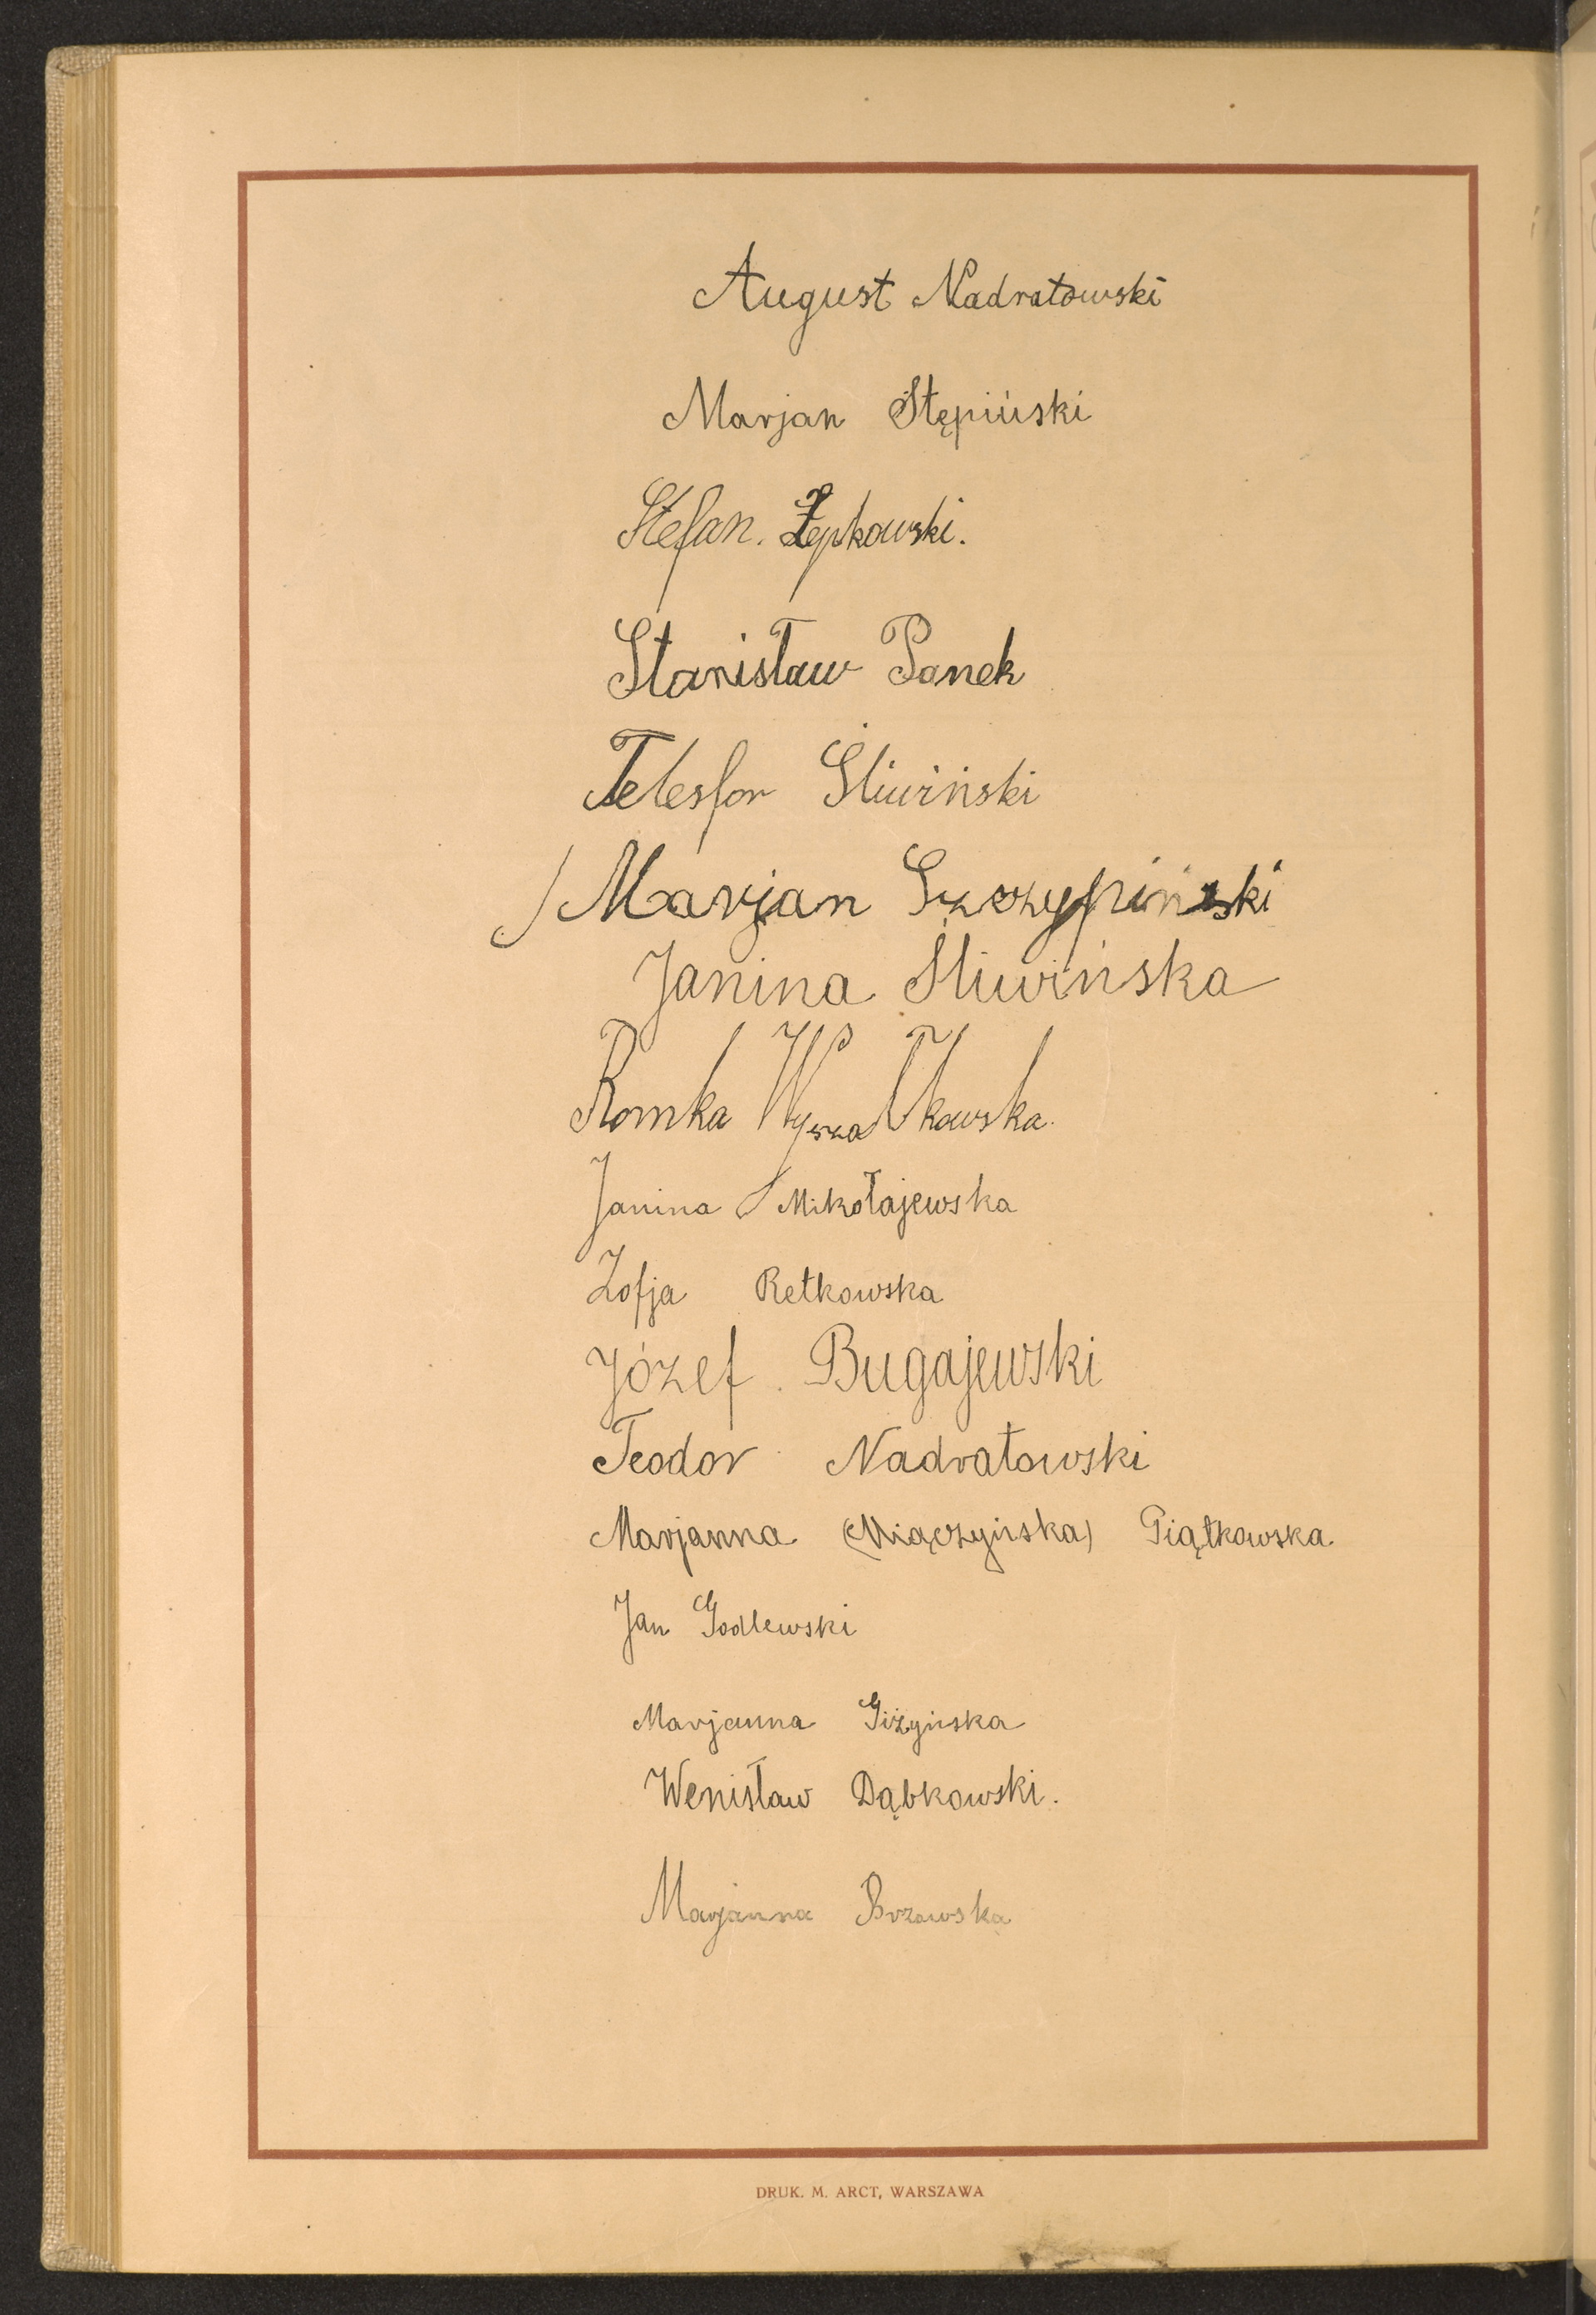 August Nadratowski
Marjan Stępiński
Stefan. Żepkowski.
Stanisław Panek
Telesfor Śliwiński
Marjan Szczypiński
Janina Śliwińska
Romka Wyszałkowska.
Janina Mikołajewska
Zofja Retkowska
Józef Bugajewski
Teodor Nadratowski
Marjanna (Miączyńska) Piątkowska.
Jan Godlewski
Marjanna Giżyńska
Wenisław Dąbkowski.
Marjanna Brzowska
DRUK. M. ARCT, WARSZAWA